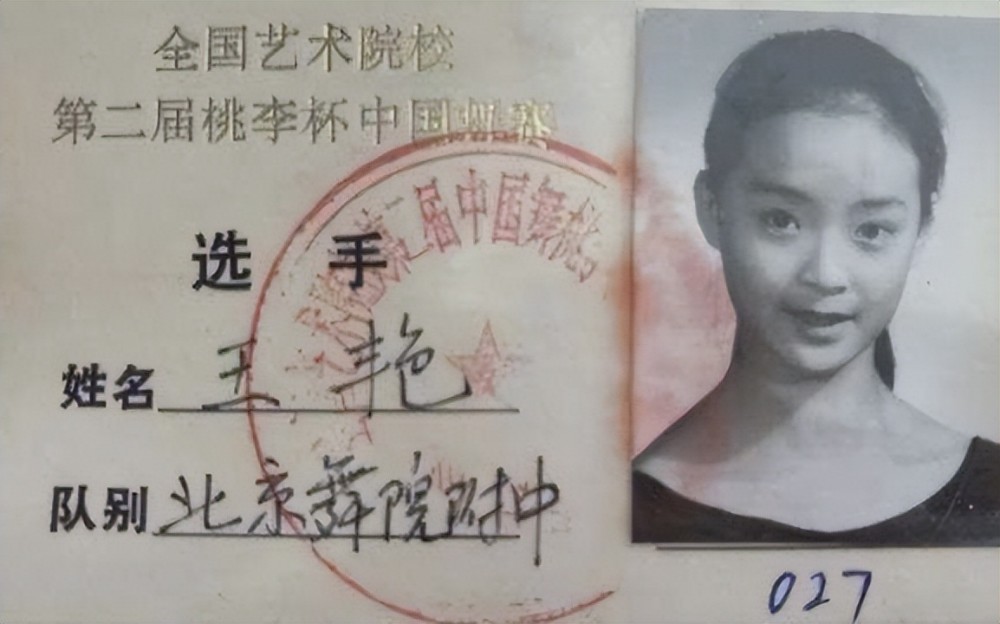 全国艺术院校
第二届桃李杯中国舞赛
选 手
姓名 王 艳
队别 北京舞院附中
第二届中国舞桃
027